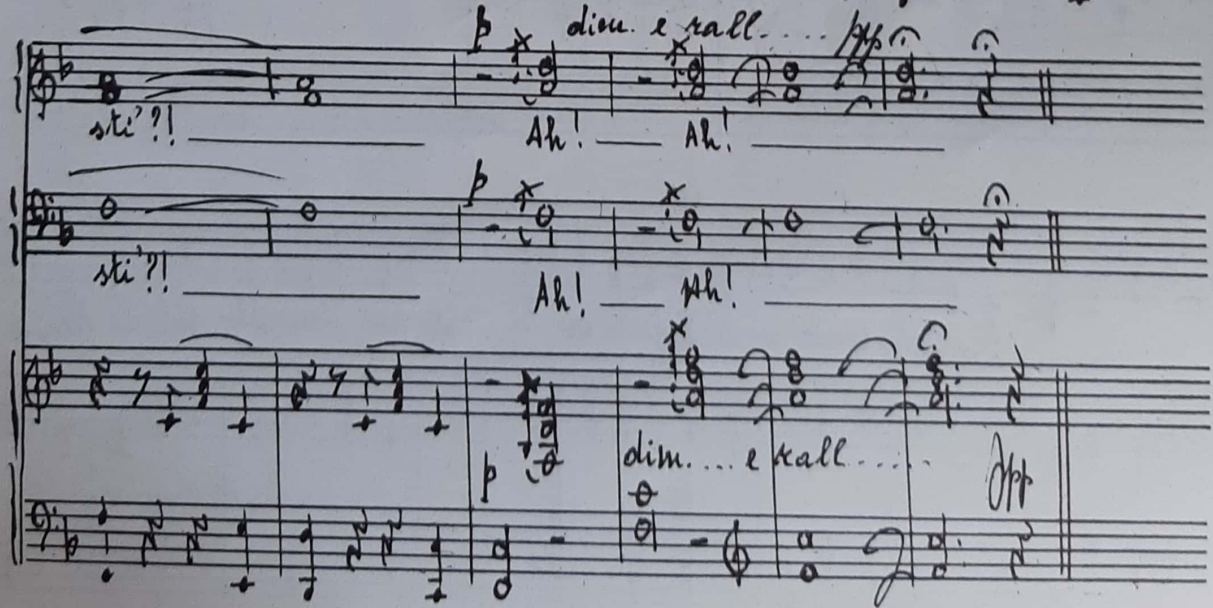 p dim. e rall..... ppp
sti'?! Ah! Ah!
p
sti'?! Ah! Ah!
p dim.... e rall...... ppp